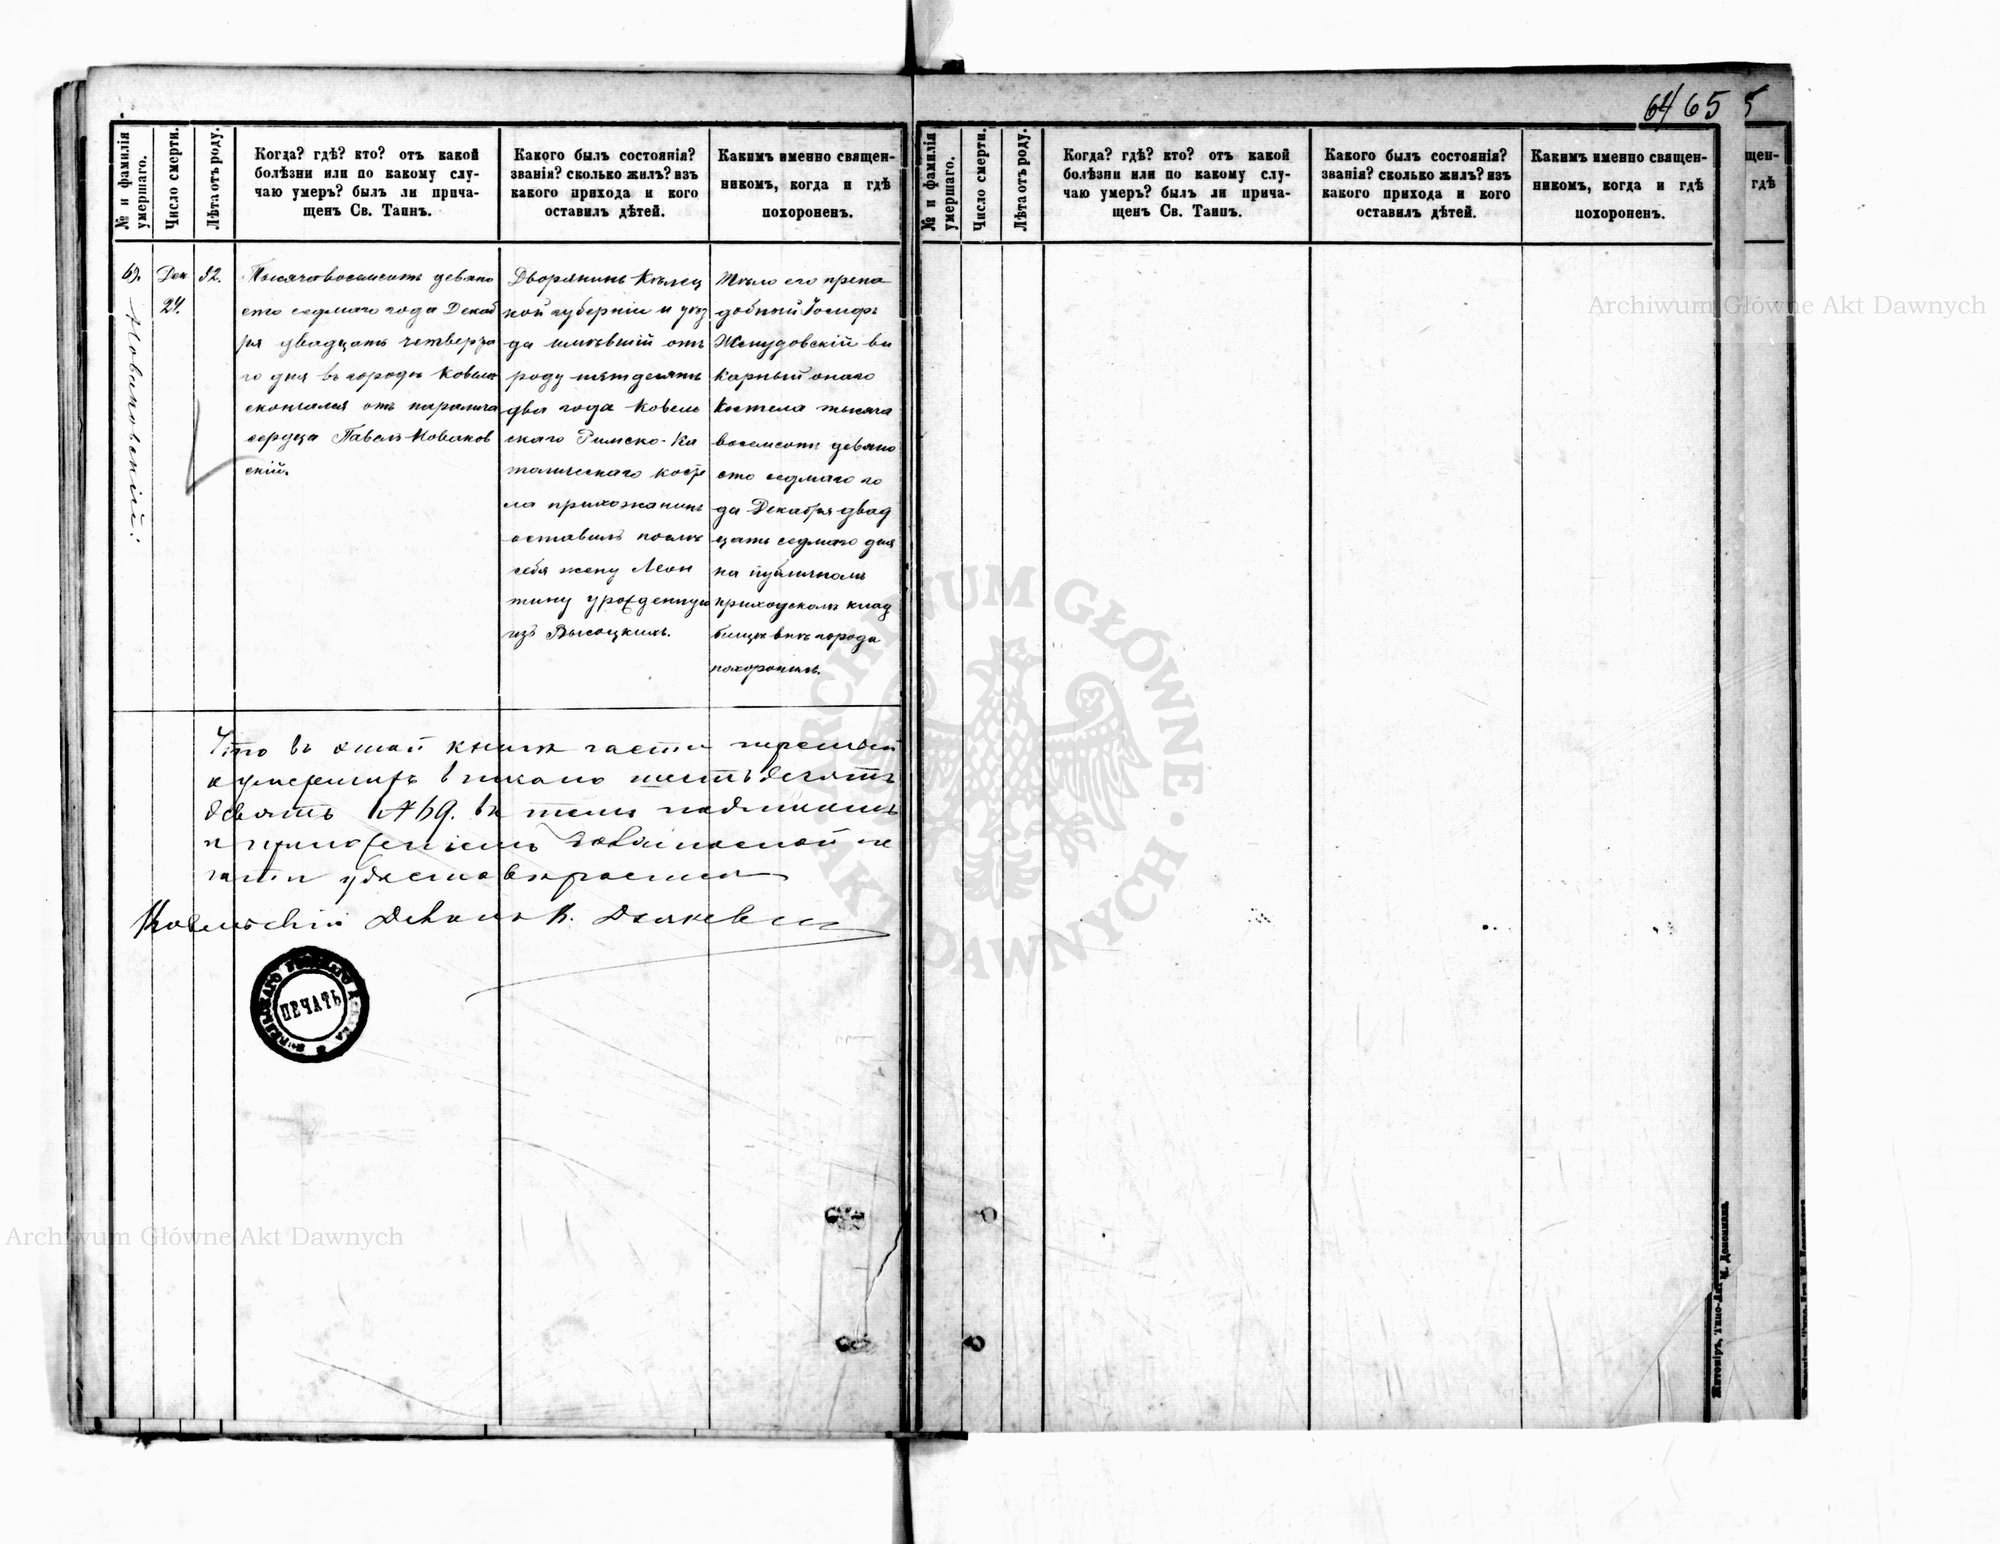 64 65 5
№ и фамилія умершаго.
Число смерти.
Лѣта отъ роду.
Когда? гдѣ? кто? отъ какой
болѣзни или по какому слу-
чаю умеръ? былъ ли прича-
щенъ Св. Таинъ.
Какого былъ состоянія?
званія? сколько жилъ? изъ
какого прихода и кого
оставилъ дѣтей.
Какимъ именно священ-
никомъ, когда и гдѣ
похороненъ.
69.
Новаковскій
Дек
24.
52.
Тысяча восемсотъ девяно
сто седмого года Декаб
ря двадцать четверта
го дня въ городѣ Ковелѣ
скончался отъ паралича
сердца Павелъ Новаков
скій.
Дворянинъ Кѣлец
кой губерніи и уѣз
да имѣвшій отъ
роду пятдесятъ
два года Ковель
скаго Римско-Ка
толическаго косте
ла прихожанинъ
оставилъ послѣ
себя жену Леон
тину урожденную
изъ Высоцкихъ.
Тѣло его препо
добный Іосифъ
Жепудовскій ви
карный онаго
Костела тысяча
восемсотъ девяно
сто седмого го
да Декабря двад
цать седмого дня
на публичномъ
приходскомъ клад
бищѣ внѣ города
похоронилъ.
Что въ этой книгѣ части третьей
о умершихъ вписано шестьдесятъ
девять № 69. въ томъ подписомъ
и приложеніемъ должностной пе
чати удостовѣряется
Ковельскій Деканъ К.
ПЕЧАТЬ
№ и фамилія умершаго.
Число смерти.
Лѣта отъ роду.
Когда? гдѣ? кто? отъ какой
болѣзни или по какому слу-
чаю умеръ? былъ ли прича-
щенъ Св. Таинъ.
Какого былъ состоянія?
званія? сколько жилъ? изъ
какого прихода и кого
оставилъ дѣтей.
Какимъ именно священ-
никомъ, когда и гдѣ
похороненъ.
щен-
гдѣ
Житомір, Типо-Лит. М. Дененмана
Archiwum Główne Akt Dawnych
Archiwum Główne Akt Dawnych
ARCHIWUM GŁÓWNE AKT DAWNYCH